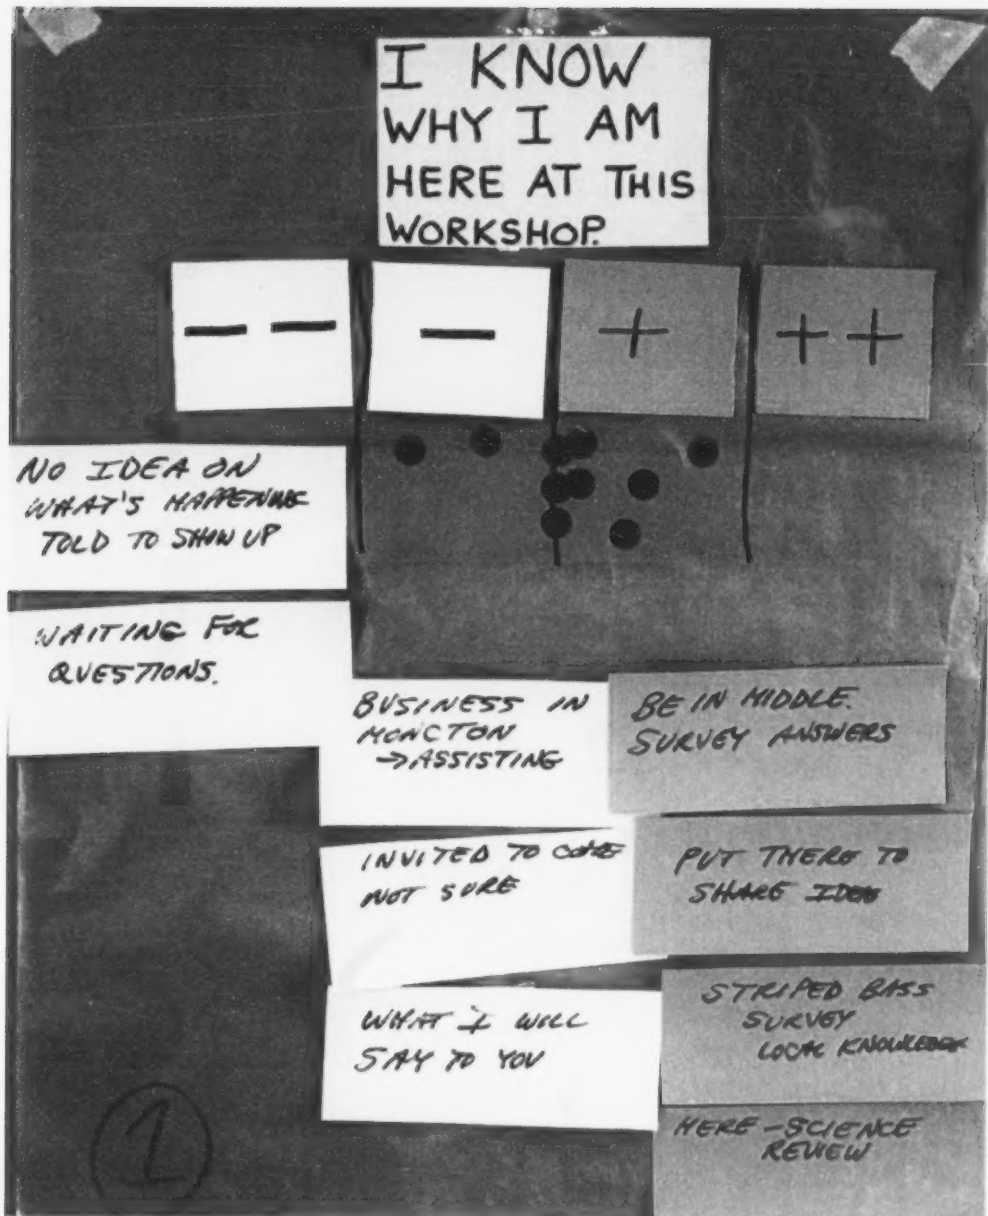 I KNOW
WHY I AM
HERE AT THIS
WORKSHOP.
— —
—
+
+ +
NO IDEA ON
WHAT'S HAPPENING
TOLD TO SHOW UP
WAITING FOR
QUESTIONS.
BUSINESS IN
MONCTON
→ASSISTING
INVITED TO COME
NOT SURE
WHAT I WILL
SAY TO YOU
BE IN MIDDLE.
SURVEY ANSWERS
PUT THERE TO
SHARE IDEA
STRIPED BASS
SURVEY
LOCAL KNOWLEDGE
HERE - SCIENCE
REVIEW
1